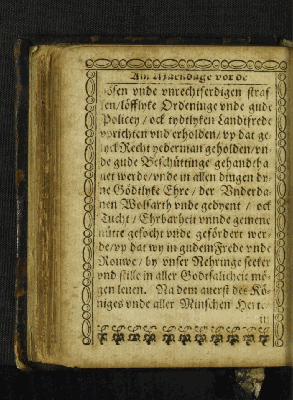 Am Mandage vor de
bösen vnde vnrechtferdigen straf
fen/löfflyke Ordeninge vnde gude
Policey / ock tydtlyken Landtfrede
vprichten vnd erholden / vp dat ge-
lyck Recht yederman geholden / vn-
de gude Beschüttinge gehandtha
uet werde / vnde in allen dingen dy-
ne Gödtlyke Ehre / der Vnderda-
nen Wolfarth vnde gedyent / ock
Tucht / Ehrbarheit vnnde gemene
nütte gesocht vnde gefördert wer-
de / vp dat wy in gudem Frede vnde
Rouwe / by vnser Nehringe seeker
vnd stille in aller Godtsalicheit mö-
gen leuen. Na dem auerst des Kö-
niges vnde aller Minschen Hert